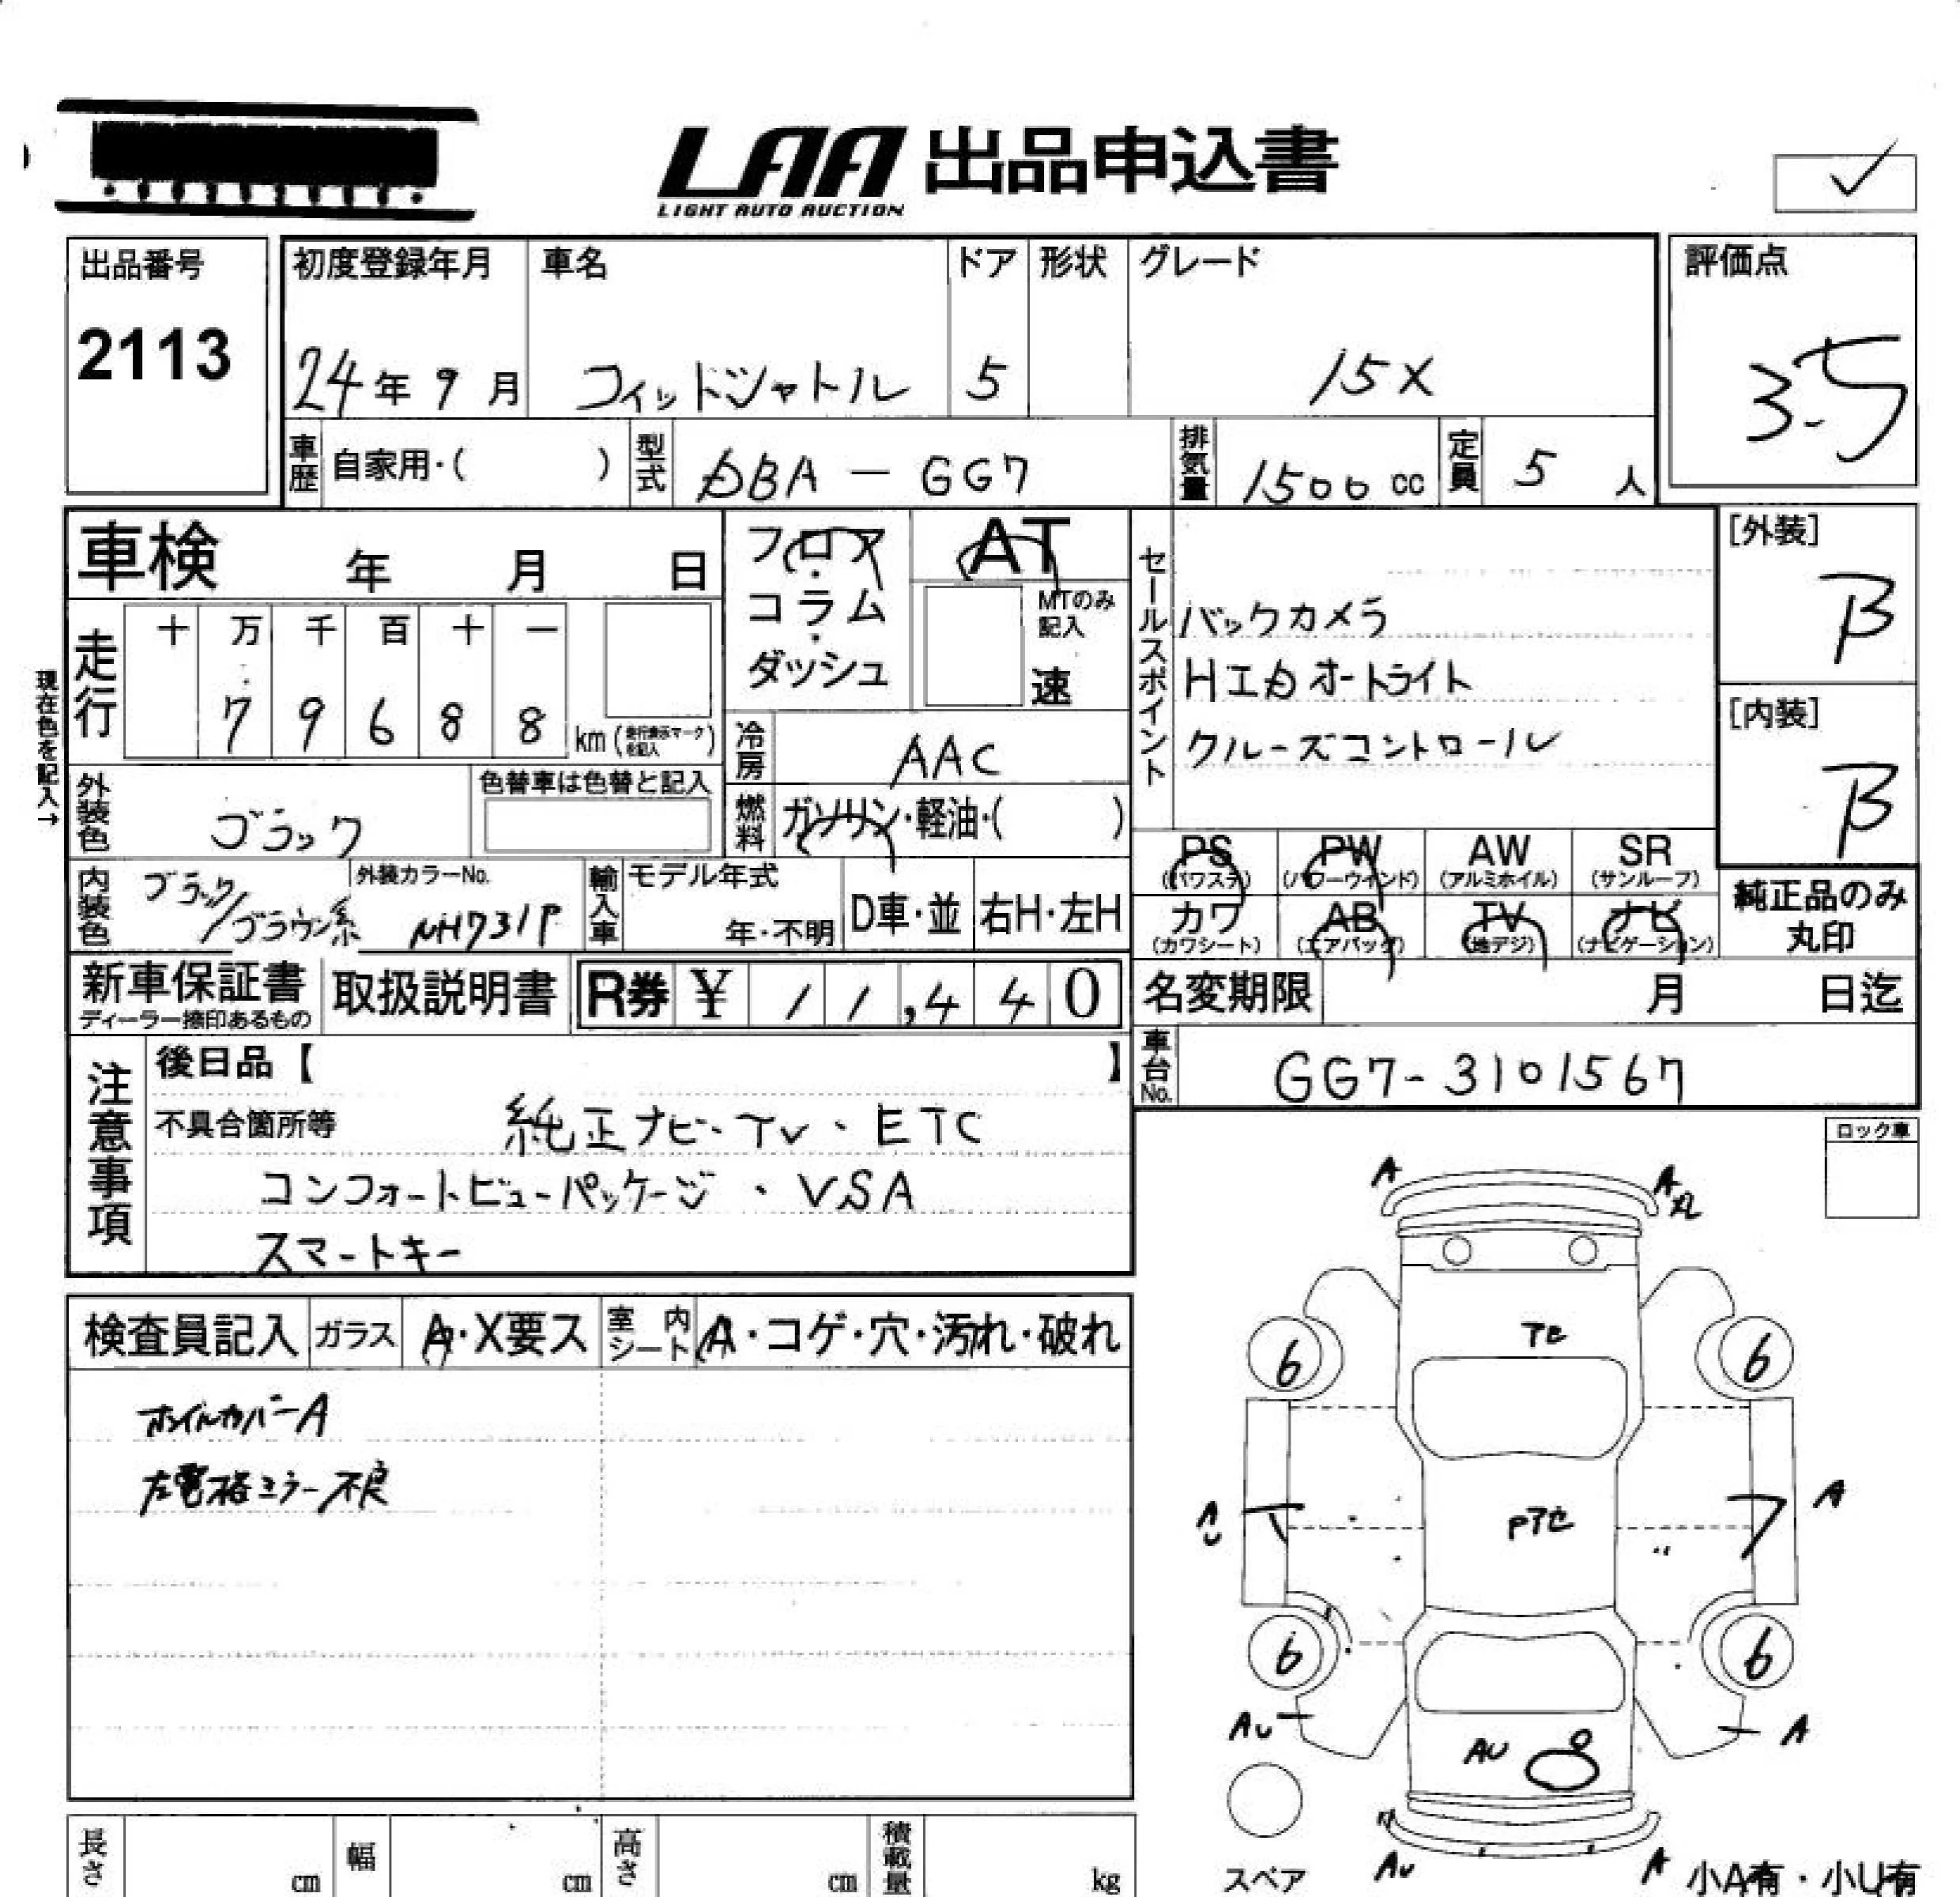 LAA 出品申込書
LIGHT AUTO AUCTION
出品番号 初度登録年月 車名 ドア 形状 グレード 評価点
2113 24年9月 フィットシャトル 5 15X 3.5
車歴 自家用・( ) 型式 DBA-GG7 排気量 1500cc 定員 5人
車検 年 月 日
フロア・コラム・ダッシュ
AT
MTのみ記入
速
セールスポイント
バックカメラ
HIDオートライト
クルーズコントロール
[外装]
B
[内装]
B
現在色を記入→
走行 十 万 千 百 十 一
7 9 6 8 8 km (走行表示マークを記入)
冷房 AAC
燃料 ガソリン・軽油・( )
外装色 ブラック 色替車は色替と記入
内装色 ブラック/ブラウン系 外装カラーNo. NH731P 輸入車 モデル年式 年・不明 D車・並 右H・左H
PS (パワステ) PW (パワーウインド) AW (アルミホイル) SR (サンルーフ)
カワ (カワシート) AB (エアバッグ) TV (地デジ) ナビ (ナビゲーション)
純正品のみ丸印
新車保証書 ディーラー捺印あるもの 取扱説明書 R券 ¥ 11,440
名変期限 月 日迄
車台No. GG7-3101567
注意事項
後日品【 】
不具合箇所等 純正ナビ・TV・ETC
コンフォートビューパッケージ・VSA
スマートキー
ロック車
検査員記入 ガラス A・X要ス 室内シート A・コゲ・穴・汚れ・破れ
ホイルカバーA
左電格ミラー不良
A A
6 6
A
6 6
AU A
AU
AU A
スペア 小A有・小U有
長さ cm 幅 cm 高さ cm 積載量 kg